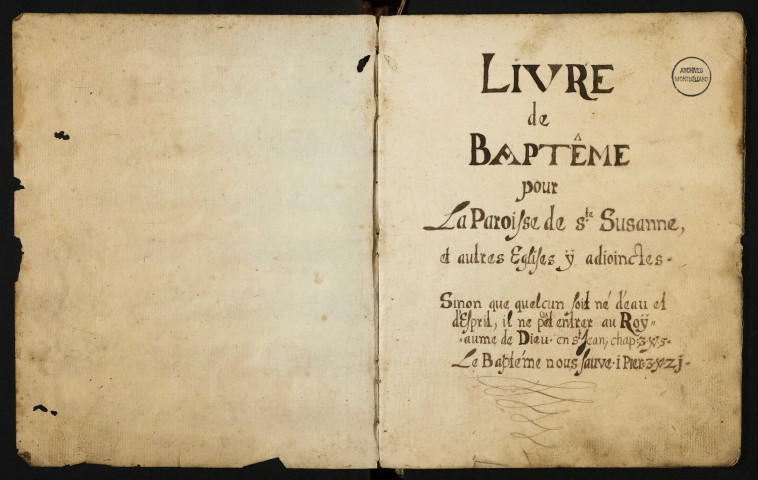 LIVRE
de
BAPTÊME
pour
La Paroisse de s.te Susanne,
et autres Eglises ÿ adioinctes.
ARCHIVES
MONTBÉLIARD
Sinon que quelcun soit né d'eau et
d'Esprit, il ne peut entrer au Roÿ=
aume de Dieu. en st Jean, chap. 3. v. 5.
Le Baptême nous sauve. i Pier. 3. v. 2j.